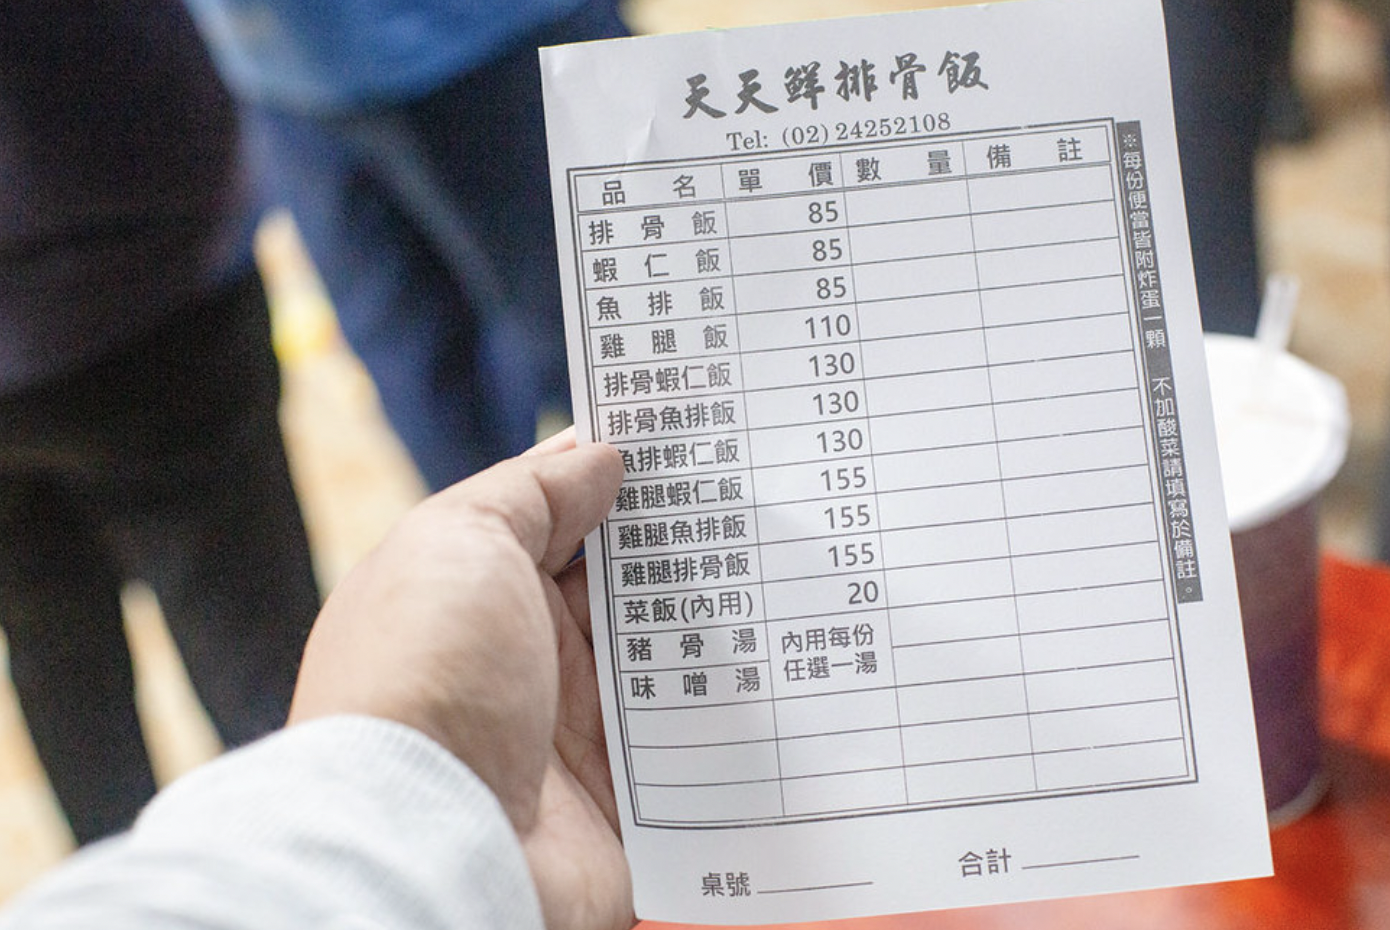 天天鮮排骨飯
Tel: (02) 24252108
品名 單價 數量 備註
排骨飯 85
蝦仁飯 85
魚排飯 85
雞腿飯 110
排骨蝦仁飯 130
排骨魚排飯 130
魚排蝦仁飯 130
雞腿蝦仁飯 155
雞腿魚排飯 155
雞腿排骨飯 155
菜飯(內用) 20
豬骨湯
味噌湯
內用每份
任選一湯
※每份便當皆附炸蛋一顆 不加酸菜請填寫於備註。
桌號
合計